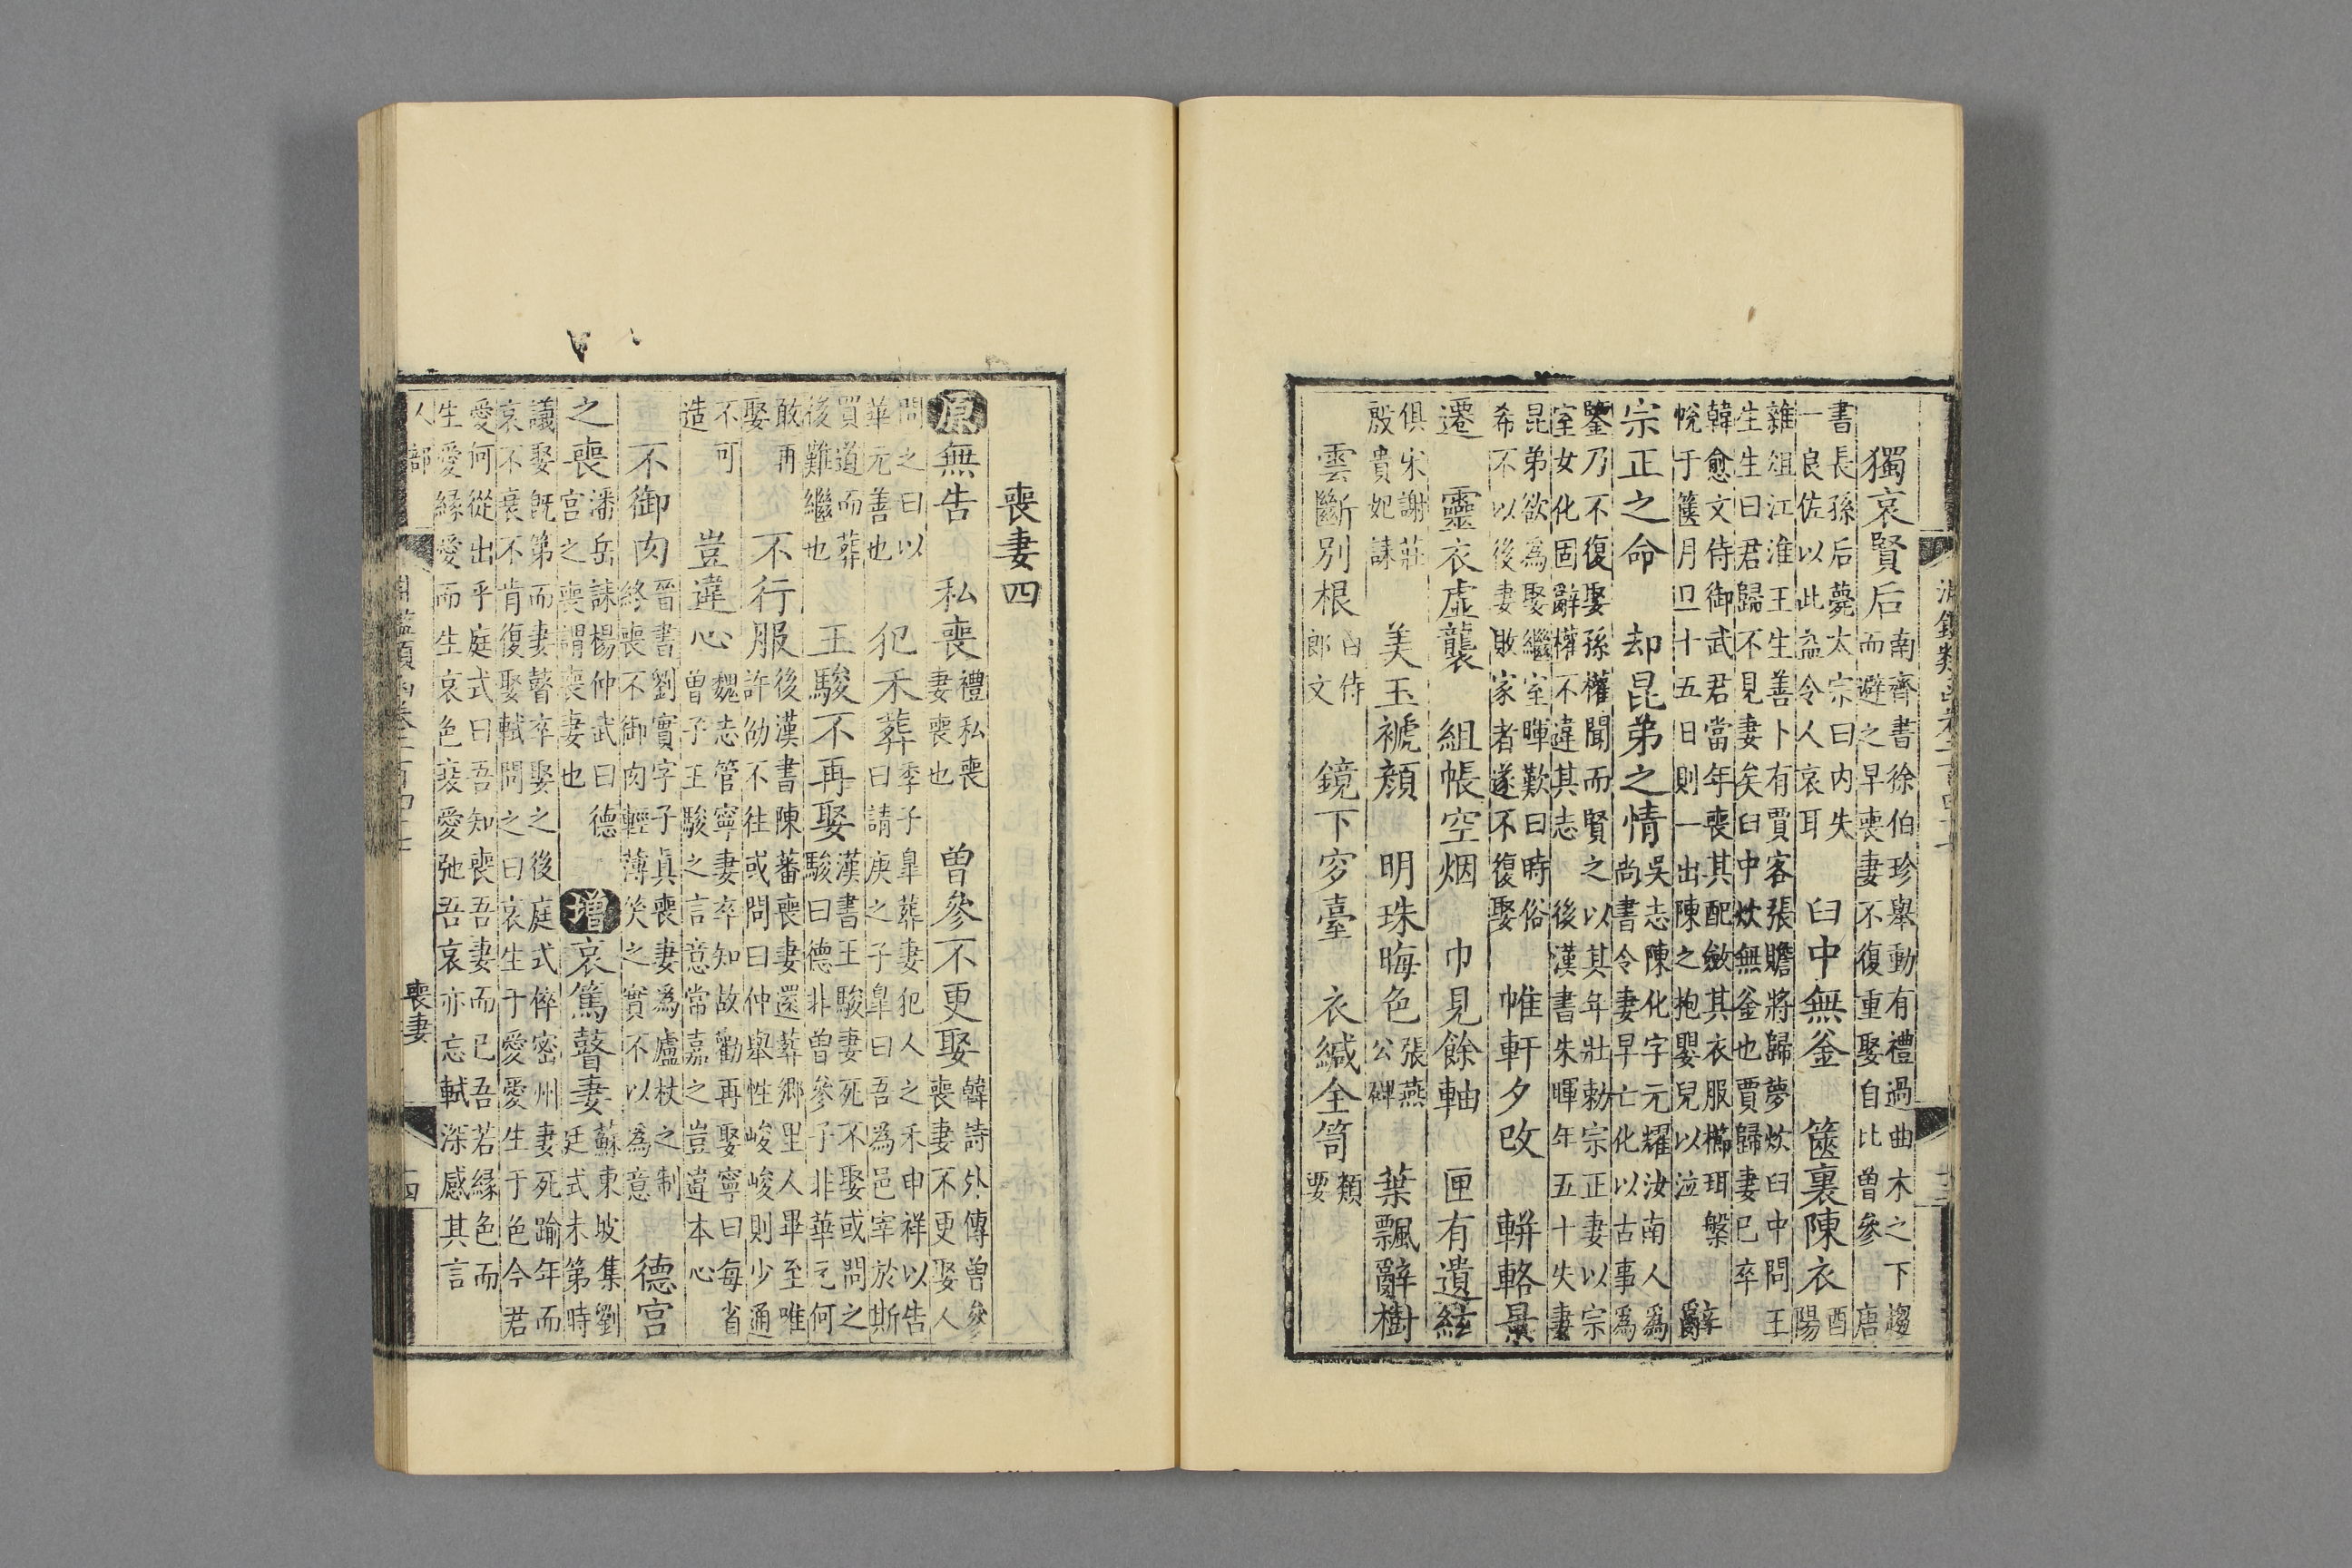 獨哀賢后 南齊書徐伯珍舉動有禮過曲木之下趨
而避之早喪妻不復重娶自比曾參 唐
書長孫后薨太宗曰内失
一良佐以此益令人哀耳 臼中無釜 篋裏陳衣 酉
陽
雜俎江淮王生善卜有賈客張瞻將歸夢炊臼中問王
生生曰君歸不見妻矣臼中炊無釜也賈歸妻已卒
韓愈文侍御武君當年喪其配斂其衣服櫛珥槃
帨于篋月旦十五日則一出陳之抱嬰兒以泣 辭
宗正之命 却昆弟之情 吳志陳化字元耀汝南人爲
尚書令妻早亡化以古事爲
鑒乃不復娶孫權聞而賢之以其年壯勅宗正妻以宗
室女化固辭權不違其志 後漢書朱暉年五十失妻
昆弟欲爲娶繼室暉歎曰時俗
希不以後妻敗家者遂不復娶 帷軒夕改 軿輅晨
遷 靈衣虛襲 組帳空烟 巾見餘軸 匣有遺絃
俱宋謝莊
殷貴妃誄 美玉褫顏 明珠晦色 張燕
公碑 葉飄辭樹
雲斷別根 白侍
郎文 鏡下穸臺 衣緘全笥 類
要
喪妻四
原 無告 私喪 禮私喪
妻喪也 曾參不更娶 韓詩外傳曾參
喪妻不更娶人
問之曰以
華元善也 犯禾葬 季子臯葬妻犯人之禾申祥以告
曰請庚之子臯曰吾爲邑宰於斯
買道而葬
後難繼也 王駿不再娶 漢書王駿妻死不娶或問之
駿曰德非曾參子非華元何
敢再
娶 不行服 後漢書陳蕃喪妻還葬郷里人畢至唯
許劭不往或問曰仲舉性峻峻則少通
不可
造 豈違心 魏志管寧妻卒知故勸再娶寧曰每省
曾子王駿之言意常嘉之豈違本心
不御肉 晉書劉實字子真喪妻爲廬杖之制
終喪不御肉輕薄笑之實不以爲意 德宫
之喪 潘岳誄楊仲武曰德
宫之喪喪謂喪妻也 增 哀篤瞽妻 蘇東坡集劉
廷式未第時
議娶既第而妻瞽卒娶之後庭式倅密州妻死踰年而
哀不衰不肯復娶軾問之曰哀生于愛愛生于色今君
愛何從出乎庭式曰吾知喪吾妻而已吾若緣色而
生愛緣愛而生哀色衰愛弛吾哀亦忘軾深感其言
人部
喪妻
四